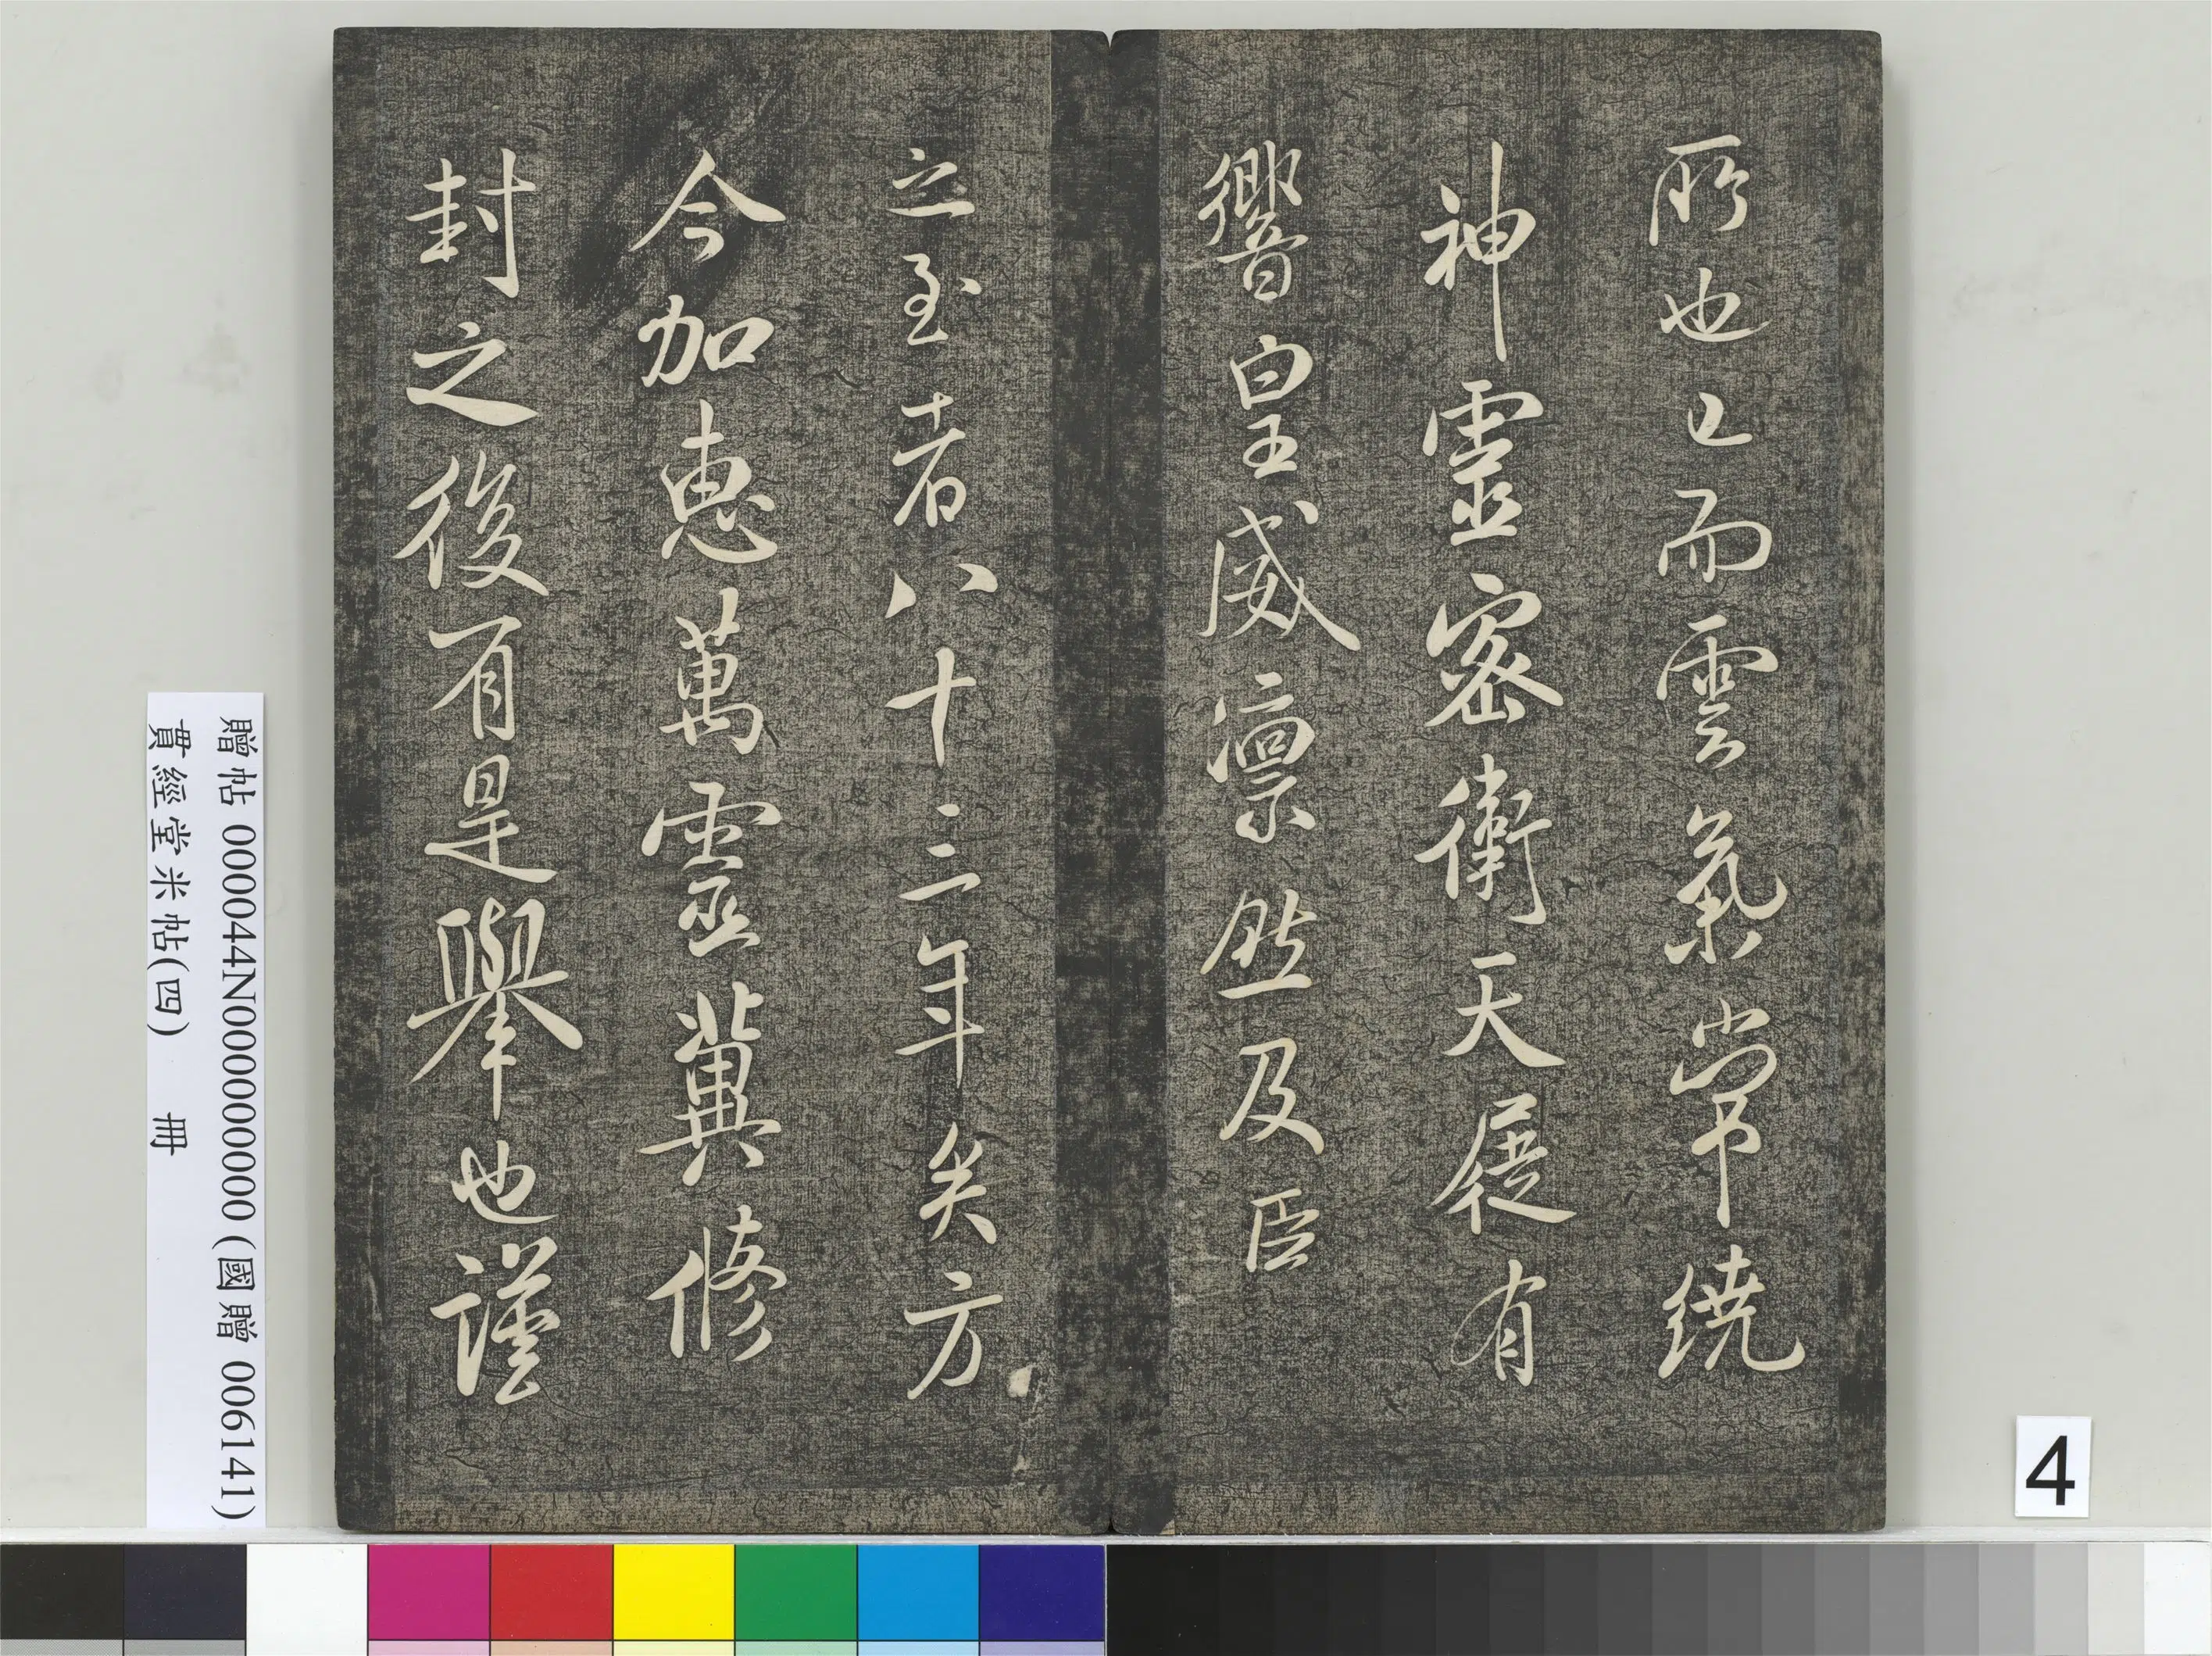 所也已而雲氣常繞
神靈密衛天屣有
響皇威凛然及臣
之至者八十三年矣方
今加惠萬靈冀修
封之後有是舉也謹
贈帖 000044N000000000 (國贈 006141)
貫經堂米帖(四) 冊
4